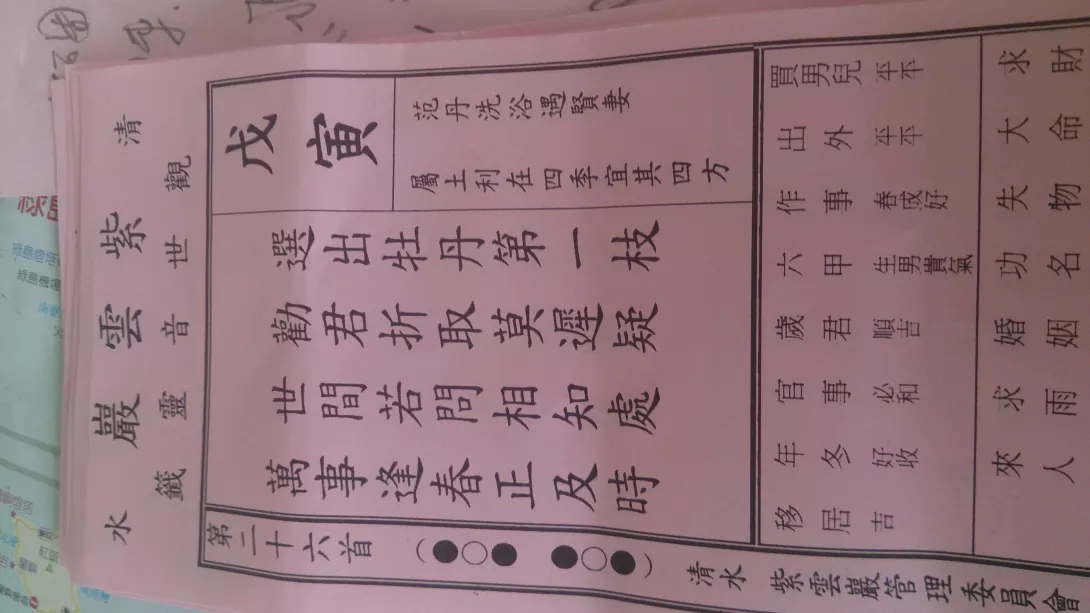 清 紫 雲 巖 水
觀 世 音 靈 籤
戊寅
范丹洗浴遇賢妻
屬土利在四季宜其四方
選出牡丹第一枝
勸君折取莫遲疑
世間若問相知處
萬事逢春正及時
第二十六首
(●○● ●○●)
買男兒 平平
出外 平平
作事 春成好
六甲 生男貴氣
歲君 順吉
官事 必和
年冬 好收
移居 吉
求財
大命
失物
功名
婚姻
求雨
來人
清水 紫雲巖管理委員會